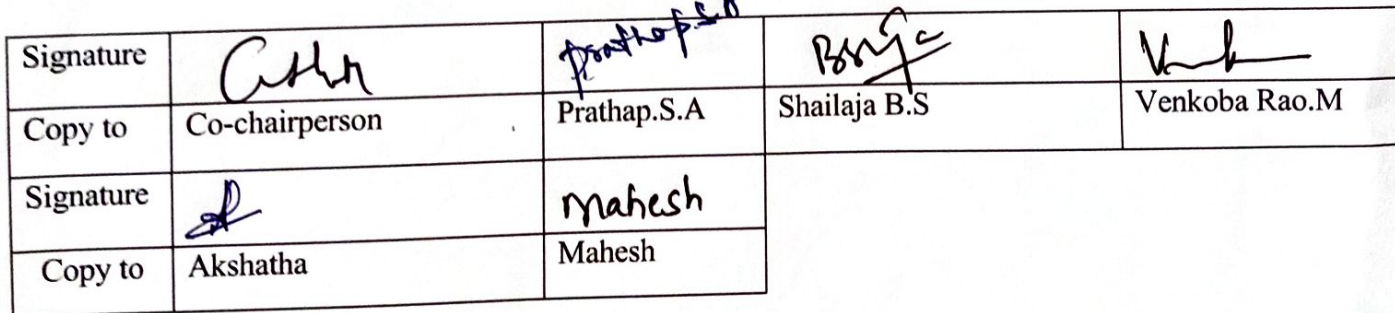 Signature Prathap S.A
Copy to Co-chairperson Prathap.S.A Shailaja B.S Venkoba Rao.M
Signature Mahesh
Copy to Akshatha Mahesh